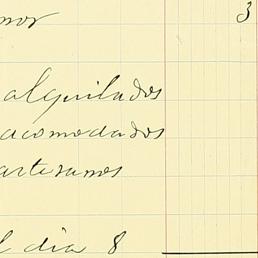 mor 3
alquilados
acomodados
artesanos
l dia 8